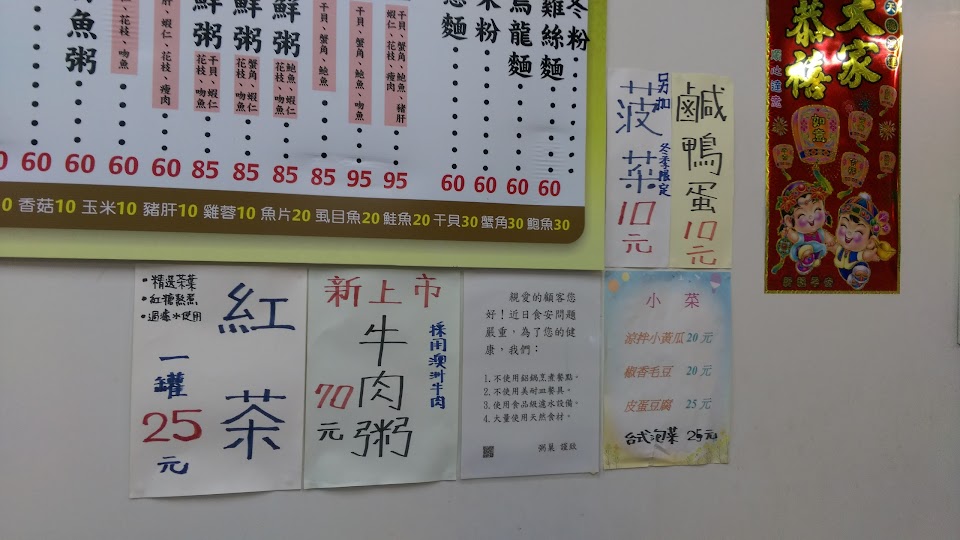 魚粥
鮮粥
鮮粥
鮮粥
麵
米粉
烏龍麵
雞絲麵
冬粉
花枝、吻魚
蝦仁、花枝、瘦肉
干貝、蟹角、鮑魚
干貝、蟹角、鮑魚、豬肝
60 60 60 60 60 85 85 85 85 95 95 60 60 60 60
香菇10 玉米10 豬肝10 雞蓉10 魚片20 虱目魚20 鮭魚20 干貝30 蟹角30 鮑魚30
另加
菠菜
冬季限定
10元
鹹鴨蛋10元
大家恭禧
如意
•精選茶葉
•紅糖熬煮
•過濾水使用
紅茶
一罐
25元
新上市
牛肉粥
採用澳洲牛肉
70元
親愛的顧客您
好！近日食安問題
嚴重，為了您的健
康，我們：
1.不使用鋁鍋烹煮餐點。
2.不使用美耐皿餐具。
3.使用食品級濾水設備。
4.大量使用天然食材。
粥巢 謹啟
小菜
涼拌小黃瓜 20 元
椒香毛豆 20 元
皮蛋豆腐 25 元
台式泡菜 25元